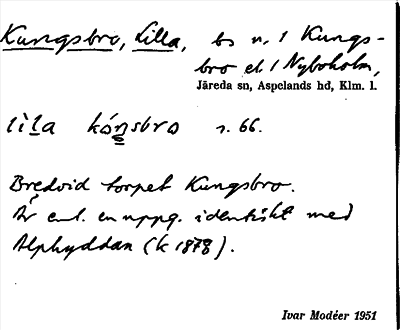 Kungsbro, Lilla, bs u. 1 Kungs-
bro el. 1 Nyboholm,
Järeda sn, Aspelands hd, Klm. l.
lìla kóŋsbro s. 66.
Bredvid torpet Kungsbro.
Är enl. en uppg. identiskt med
Alphyddan (k 1878).
Ivar Modéer 1951